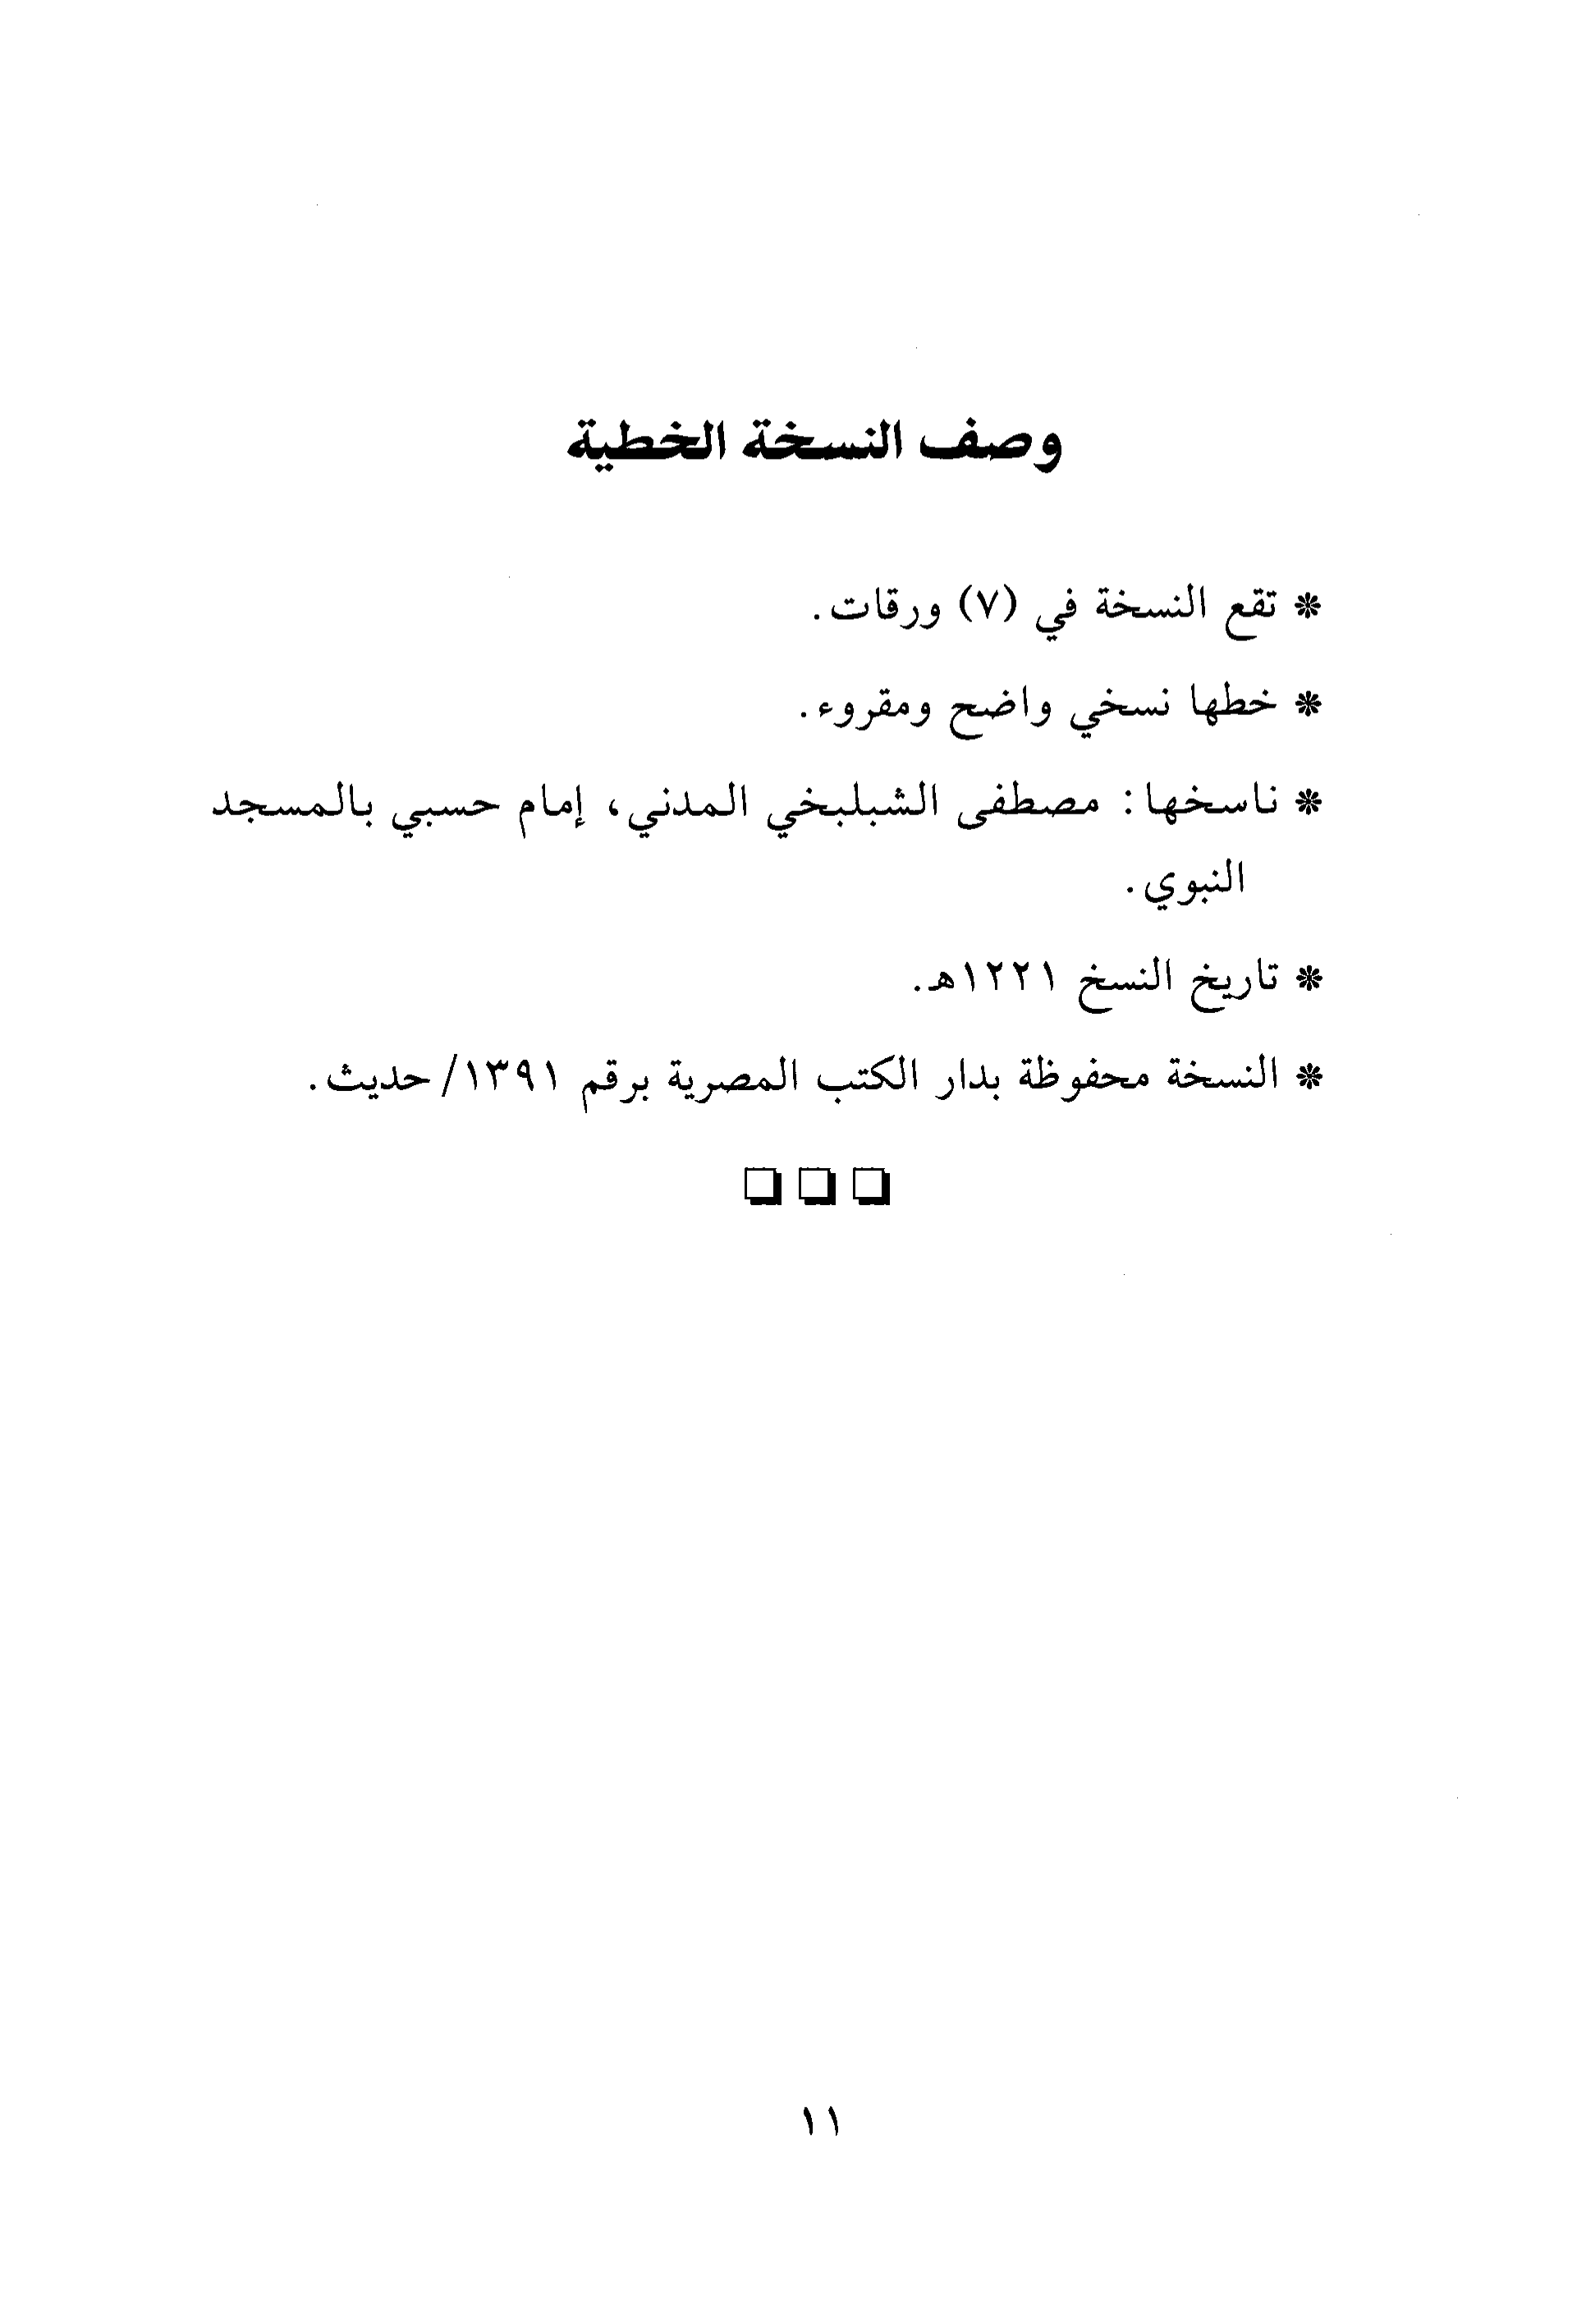 وصف النسخة الخطية
* تقع النسخة في (٧) ورقات.
* خطها نسخي واضح ومقروء.
* ناسخها: مصطفى الشبلبخي المدني، إمام حسبي بالمسجد
النبوي.
* تاريخ النسخ ١٢٢١هـ.
* النسخة محفوظة بدار الكتب المصرية برقم ١٣٩١/ حديث.
١١